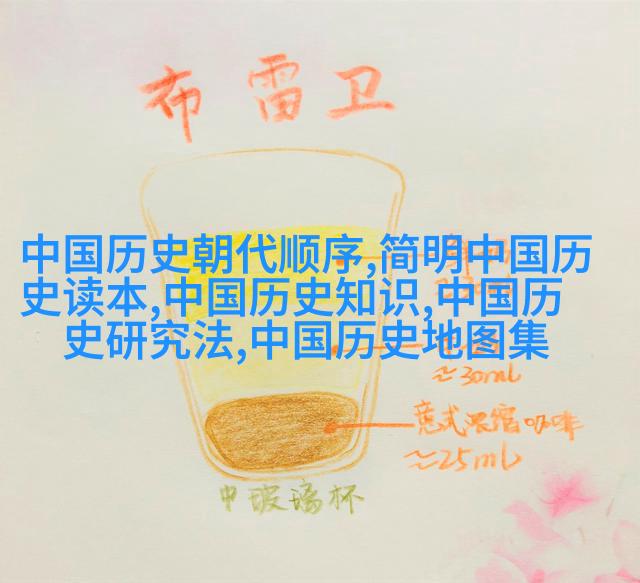 布雷卫
中国历史朝代顺序,简明中国历
史读本,中国历史知识,中国历
史研究法,中国历史地图集
≈30ml
意式浓缩咖啡
≈25ml
中玻璃杯